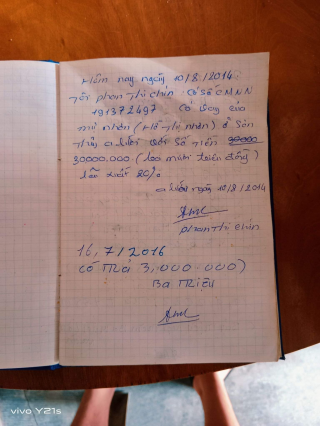 Hôm nay ngày 10/8/2014:
Tôi phan Thị chín Có Số CMNN
191372497 Có vay của
mụ nhàn (Hồ Thị nhàn) ở Sơn
Thủy a Lưới với Số Tiền
30000.000 (ba mươi triệu đồng)
lãi xuất 20%
a Lưới ngày 10/8/2014
phan Thị chín
16, 7/2016
có Trả 3,000.000)
Ba Triệu
vivo Y21s